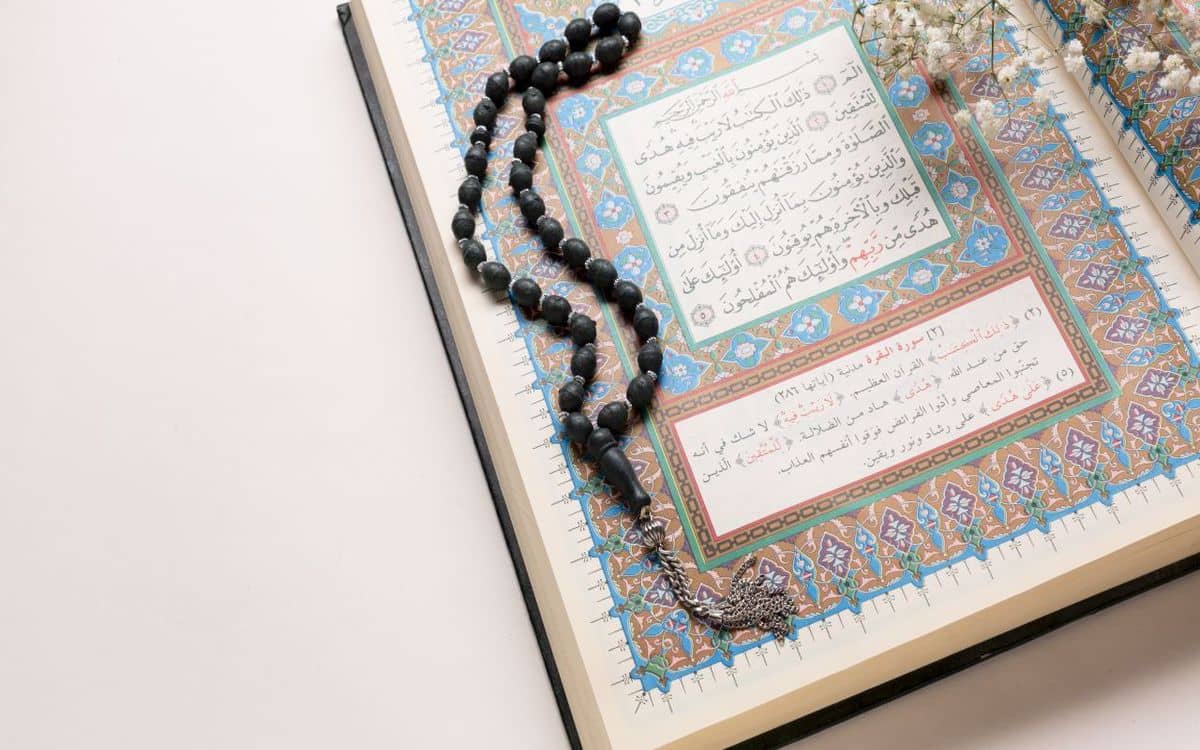 بِسْمِ ٱللَّهِ ٱلرَّحْمَٰنِ ٱلرَّحِيمِ
الٓمٓ ١ ذَٰلِكَ ٱلْكِتَٰبُ لَا رَيْبَ فِيهِ هُدًى
لِّلْمُتَّقِينَ ٢ ٱلَّذِينَ يُؤْمِنُونَ بِٱلْغَيْبِ وَيُقِيمُونَ
ٱلصَّلَوٰةَ وَمِمَّا رَزَقْنَٰهُمْ يُنفِقُونَ ٣
وَٱلَّذِينَ يُؤْمِنُونَ بِمَآ أُنزِلَ إِلَيْكَ وَمَآ أُنزِلَ مِن
قَبْلِكَ وَبِٱلْءَاخِرَةِ هُمْ يُوقِنُونَ ٤ أُو۟لَٰٓئِكَ عَلَىٰ
هُدًى مِّن رَّبِّهِمْ وَأُو۟لَٰٓئِكَ هُمُ ٱلْمُفْلِحُونَ ٥
[٢] سورة البقرة مدنية (آياتها ٢٨٦)
(٢) ﴿ذَٰلِكَ ٱلْكِتَٰبُ﴾ القرآن العظيم. ﴿لَا رَيْبَ فِيهِ﴾ لا شك في أنه
حق من عند الله. ﴿هُدًى﴾ هاد من الضلالة. ﴿لِّلْمُتَّقِينَ﴾ الذين
تجنبوا المعاصي وأدوا الفرائض فوقوا أنفسهم العذاب.
(٥) ﴿عَلَىٰ هُدًى﴾ على رشاد ونور ويقين.